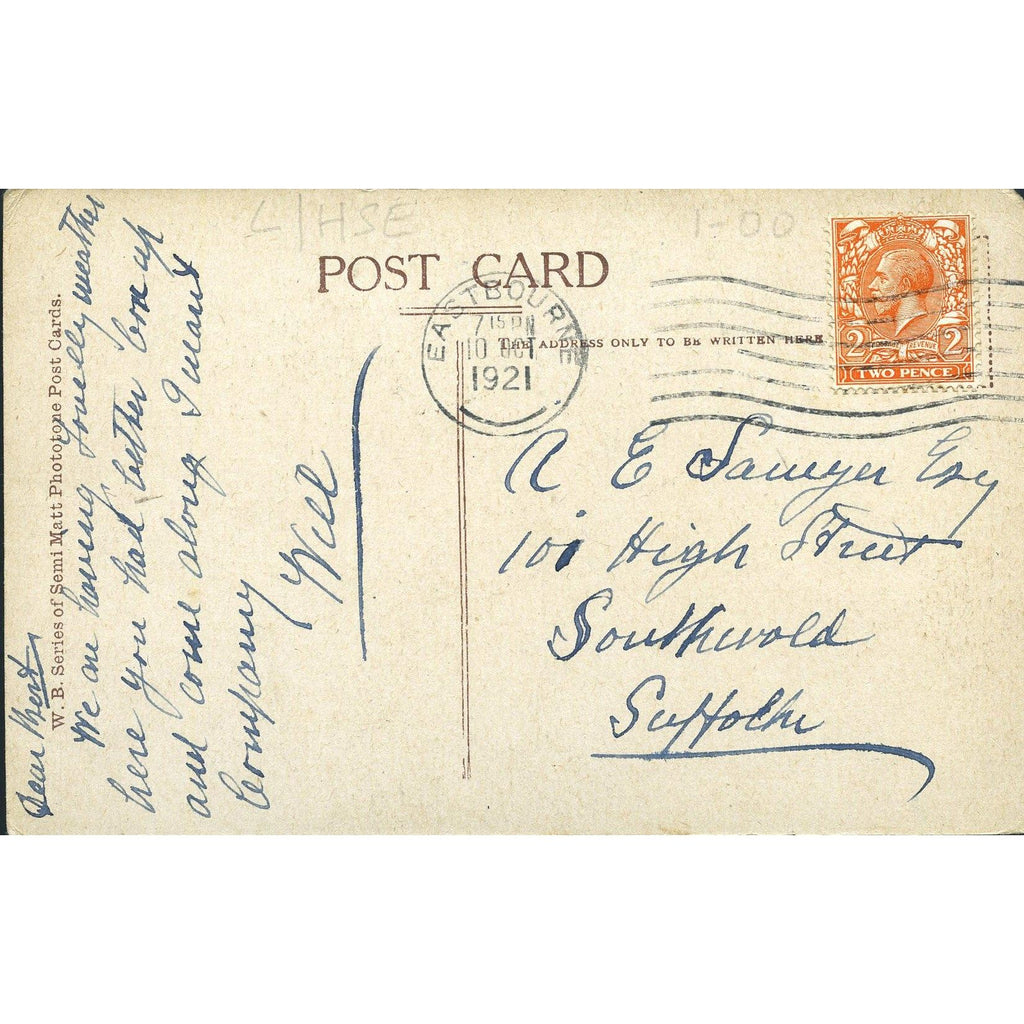 L/HSE
1-00
POST CARD
THE ADDRESS ONLY TO BE WRITTEN HERE
EASTBOURNE
7 15 PM
10 OC
1921
2 POSTAGE REVENUE 2
TWO PENCE
W. B. Series of Semi Matt Phototone Post Cards.
Dear Bert
We are having lovelly weather
here you had better box up
and come along I want
Company
Will
E Sawyer Esq
101 High Street
Southwold
Suffolk